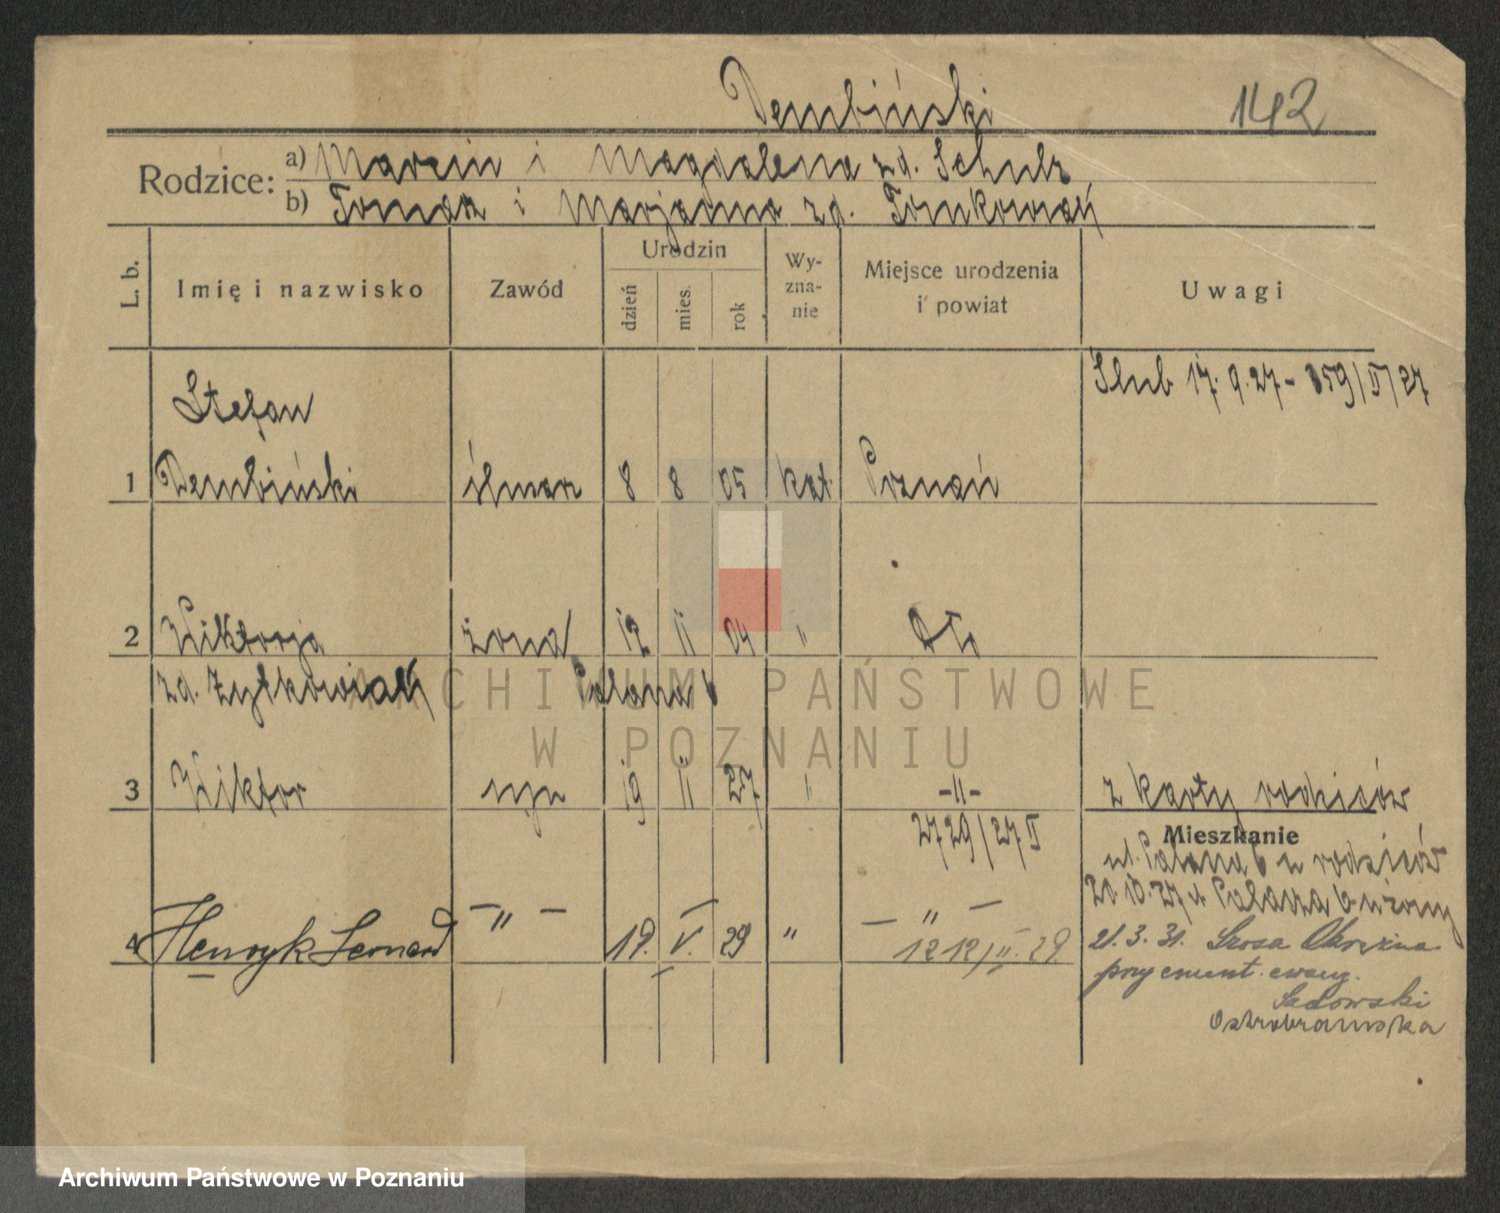 Dembiński 142
Rodzice: a) Marcin i Magdalena zd. Schulz
b) Tomasz i Marjanna zd.
L. b. Imię i nazwisko Zawód Urodzin Wy-zna-nie Miejsce urodzenia i powiat Uwagi
dzień mies. rok
Ślub 17.9.27 - 859/II/27
Stefan
1 Dembiński ślusarz 8 8 05 kat. Poznań
2 Wiktorja żona 12 11 04 "
zd. Żytkowiak Polana 6
ARCHIWUM PAŃSTWOWE
W POZNANIU
3 Wiktor syn 19 11 27 " -"- z karty rodziców
2729/27 II Mieszkanie
ul. Polana 6 u rodziców
20.10.27 r. Polana 6 u żony
4 Henryk Leonard -"- 19. V. 29 " -"- 21.3.31. Szosa Okrężna
1212/II.29 przy cment. ewang.
Sadowski
Ostrobramska
Archiwum Państwowe w Poznaniu